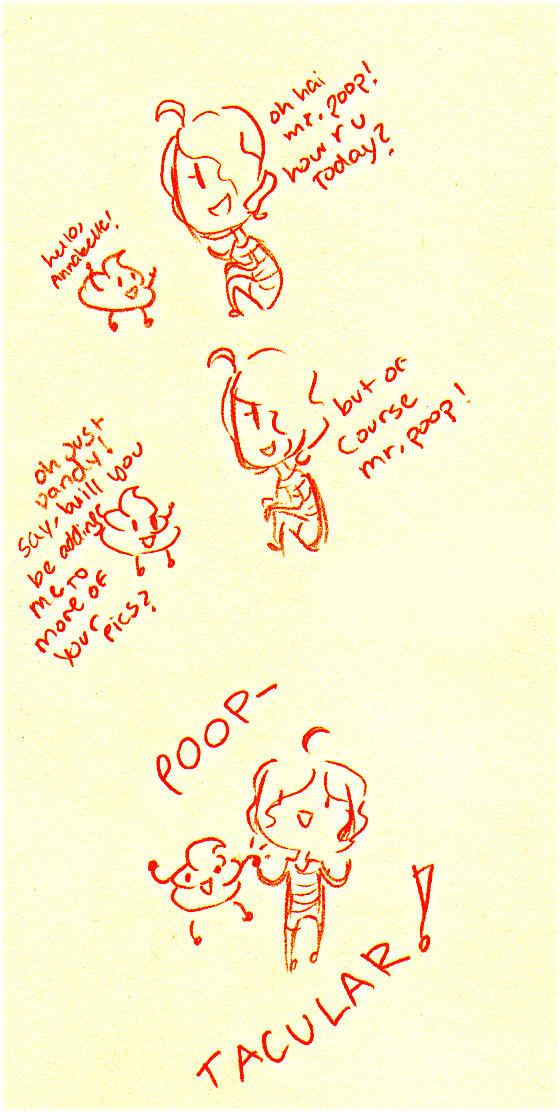 oh hai
mr. poop!
how r u
today?
hello,
Annabelle!
but of
course
mr. poop!
oh just
dandy!
say, will you
be adding
me to
more of
your
pics?
POOP-
TACULAR!